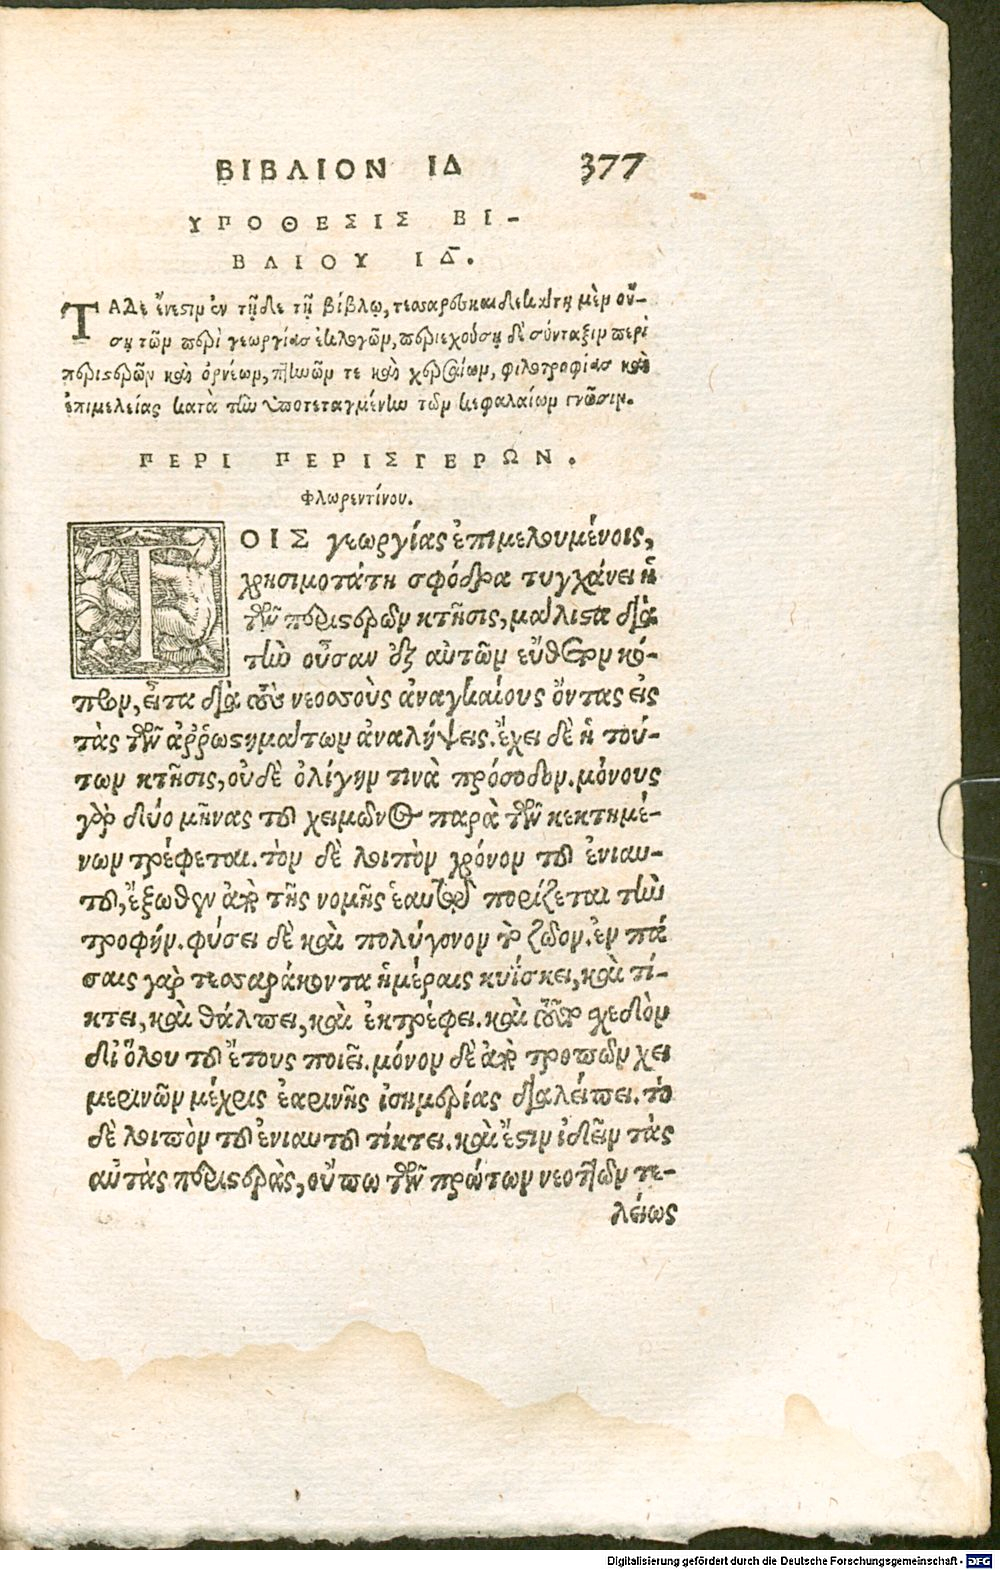 ΒΙΒΛΙΟΝ ΙΔ 377
ΥΠΟΘΕΣΙΣ ΒΙ-
ΒΛΙΟΥ ΙΔ.
ΤΑΔε ἔνεστιν ἐν τῇδε τῇ βίβλῳ, τεσσαρεσκαιδεκάτῃ μὲν οὔ-
σῃ τῶν περὶ γεωργίας ἐκλογῶν, περιεχούσῃ δὲ σύνταξιν περὶ
περιστερῶν καὶ ὀρνέων, πτηνῶν τε καὶ χερσαίων, φιλοτροφίας καὶ
ἐπιμελείας κατὰ τὴν ὑποτεταγμένην τῶν κεφαλαίων γνῶσιν.
ΠΕΡΙ ΠΕΡΙΣΤΕΡΩΝ.
Φλωρεντίνου.
ΤΟΙΣ γεωργίας ἐπιμελουμένοις,
χρησιμοτάτη σφόδρα τυγχάνει ἡ
τῶν περιστερῶν κτῆσις, μάλιστα διὰ
τὴν οὖσαν ἐξ αὐτῶν εὔθετον κό-
προν, εἶτα διὰ τοὺς νεοσσοὺς ἀναγκαίους ὄντας εἰς
τὰς τῶν ἀῤῥωστημάτων ἀναλήψεις. ἔχει δὲ ἡ τού-
των κτῆσις, οὐδὲ ὀλίγην τινὰ πρόσοδον. μόνους
γὰρ δύο μῆνας τοῦ χειμῶνος παρὰ τῶν κεκτημέ-
νων τρέφεται. τὸν δὲ λοιπὸν χρόνον τοῦ ἐνιαυ-
τοῦ, ἔξωθεν ἀπὸ τῆς νομῆς ἑαυτῷ πορίζεται τὴν
τροφήν. φύσει δὲ καὶ πολύγονον τὸ ζῶον. ἐν πά
σαις γὰρ τεσσαράκοντα ἡμέραις κυΐσκει, καὶ τί-
κτει, καὶ θάλπει, καὶ ἐκτρέφει. καὶ τοῦτο σχεδὸν
δι ὅλου τοῦ ἔτους ποιεῖ. μόνον δὲ ἀπὸ τροπῶν χει
μερινῶν μέχρις ἐαρινῆς ἰσημερίας διαλείπει. τὸ
δὲ λοιπὸν τοῦ ἐνιαυτοῦ τίκτει. καὶ ἔστιν ἰδεῖν τὰς
αὐτὰς περιστερὰς, οὔπω τῶν πρώτων νεοττῶν τε-
λείως
Digitalisierung gefördert durch die Deutsche Forschungsgemeinschaft - DFG